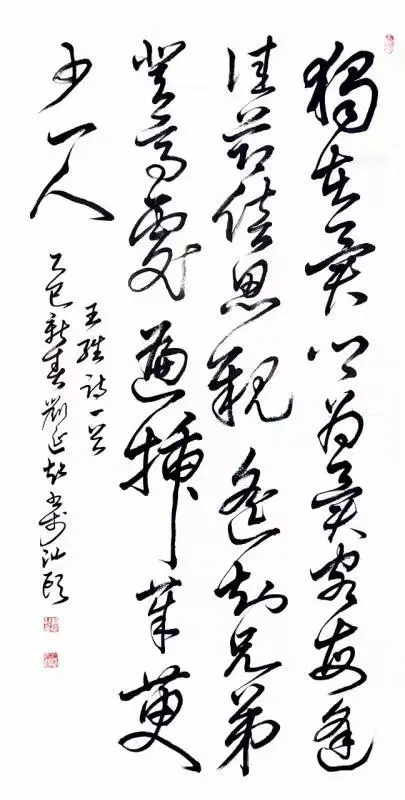 獨在異鄉為異客每逢
佳節倍思親遙知兄弟
登高處遍插茱萸
少一人
王維詩一首
乙巳新春劉延